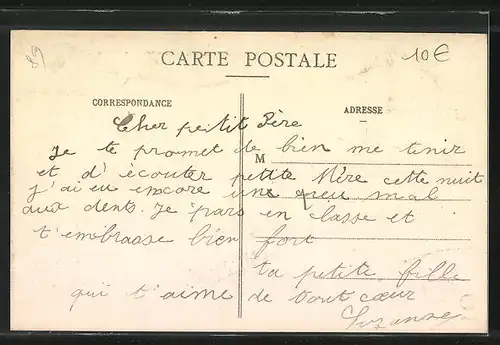 89
10€
CARTE POSTALE
CORRESPONDANCE
ADRESSE
Cher petit Père
Je te promet de bien me tenir
M
et d'écouter petite Mère cette nuit
j'ai eu encore une peu mal
aux dents. Je pars en classe et
t'embrasse bien fort
ta petite fille
qui t'aime de tout cœur
Suzanne